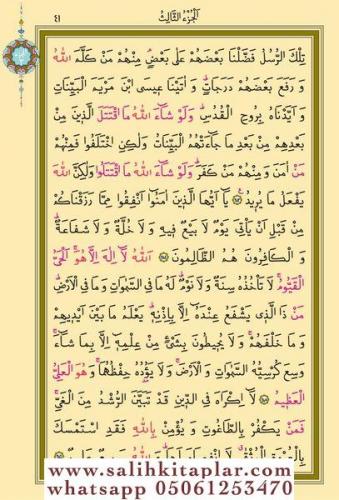 اَلْجُزْءُ الثَّالِثُ
٤١
تِلْكَ الرُّسُلُ فَضَّلْنَا بَعْضَهُمْ عَلٰى بَعْضٍ مِنْهُمْ مَنْ كَلَّمَ اللّٰهُ
وَ رَفَعَ بَعْضَهُمْ دَرَجَاتٍ وَ اٰتَيْنَا عِيسَى ابْنَ مَرْيَمَ الْبَيِّنَاتِ
وَ اَيَّدْنَاهُ بِرُوحِ الْقُدُسِ وَلَوْ شَاءَ اللّٰهُ مَا اقْتَتَلَ الَّذِينَ مِنْ
بَعْدِهِمْ مِنْ بَعْدِ مَا جَاءَتْهُمُ الْبَيِّنَاتُ وَلٰكِنِ اخْتَلَفُوا فَمِنْهُمْ
مَنْ اٰمَنَ وَ مِنْهُمْ مَنْ كَفَرَ وَلَوْ شَاءَ اللّٰهُ مَا اقْتَتَلُوا وَلٰكِنَّ اللّٰهَ
يَفْعَلُ مَا يُرِيدُ يَا اَيُّهَا الَّذِينَ اٰمَنُوا اَنْفِقُوا مِمَّا رَزَقْنَاكُمْ
مِنْ قَبْلِ اَنْ يَأْتِيَ يَوْمٌ لَا بَيْعٌ فِيهِ وَ لَا خُلَّةٌ وَ لَا شَفَاعَةٌ
وَ الْكَافِرُونَ هُمُ الظَّالِمُونَ اَللّٰهُ لَا اِلٰهَ اِلَّا هُوَ اَلْحَيُّ
الْقَيُّومُ لَا تَأْخُذُهُ سِنَةٌ وَلَا نَوْمٌ لَهُ مَا فِي السَّمٰوَاتِ وَ مَا فِي الْاَرْضِ
مَنْ ذَا الَّذِي يَشْفَعُ عِنْدَهُ اِلَّا بِاِذْنِهِ يَعْلَمُ مَا بَيْنَ اَيْدِيهِمْ
وَ مَا خَلْفَهُمْ وَ لَا يُحِيطُونَ بِشَيْءٍ مِنْ عِلْمِهِ اِلَّا بِمَا شَاءَ
وَسِعَ كُرْسِيُّهُ السَّمٰوَاتِ وَ الْاَرْضَ وَ لَا يَؤُدُهُ حِفْظُهُمَا وَ هُوَ الْعَلِيُّ
الْعَظِيمُ لَا اِكْرَاهَ فِي الدِّينِ قَدْ تَبَيَّنَ الرُّشْدُ مِنَ الْغَيِّ
فَمَنْ يَكْفُرْ بِالطَّاغُوتِ وَ يُؤْمِنْ بِاللّٰهِ فَقَدِ اسْتَمْسَكَ
www.salihkitaplar.com
whatsapp 05061253470